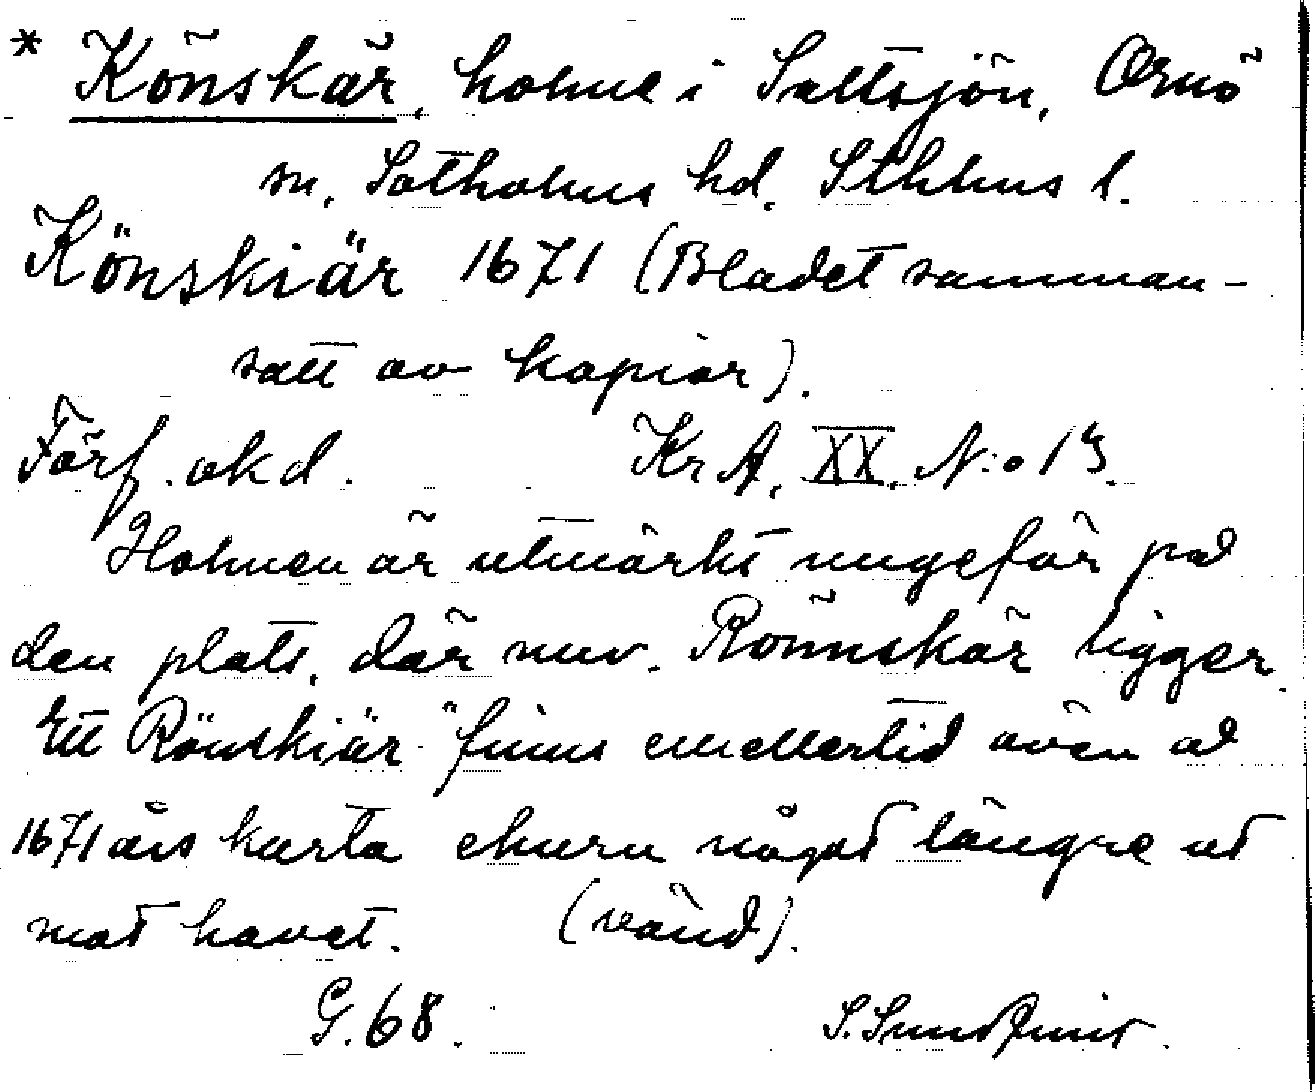 * Könskär, holme i Saltsjön, Ornö
sn, Sotholms hd, Sthlms l.
Könskiär 1671 (Bladet samman-
satt av kopior).
Förf. okd. Kr A, XX, N:o 13.
Holmen är utmärkt ungefär på
den plats, där nuv. Rönnskär ligger.
Ett Rönskiär" finns emellertid även å
1671 års karta ehuru något längre ut
mot havet. (vänd).
G. 68.